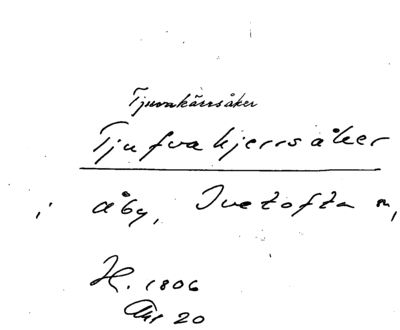 Tjuvakärrsåker
Tjufvakjerrsåker
i Åby, Ivetofta sn,
H. 1806
Akt 20